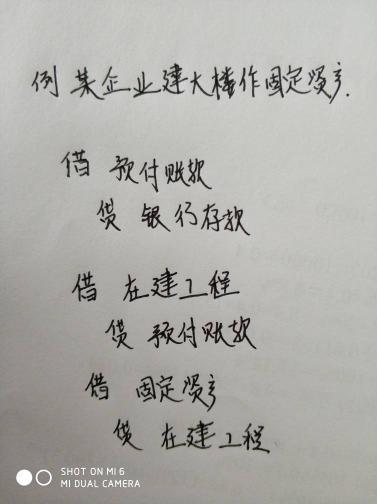 例 某企业建大楼作固定资产.
借 预付账款
贷 银行存款
借 在建工程
贷 预付账款
借 固定资产
贷 在建工程
SHOT ON MI 6
MI DUAL CAMERA